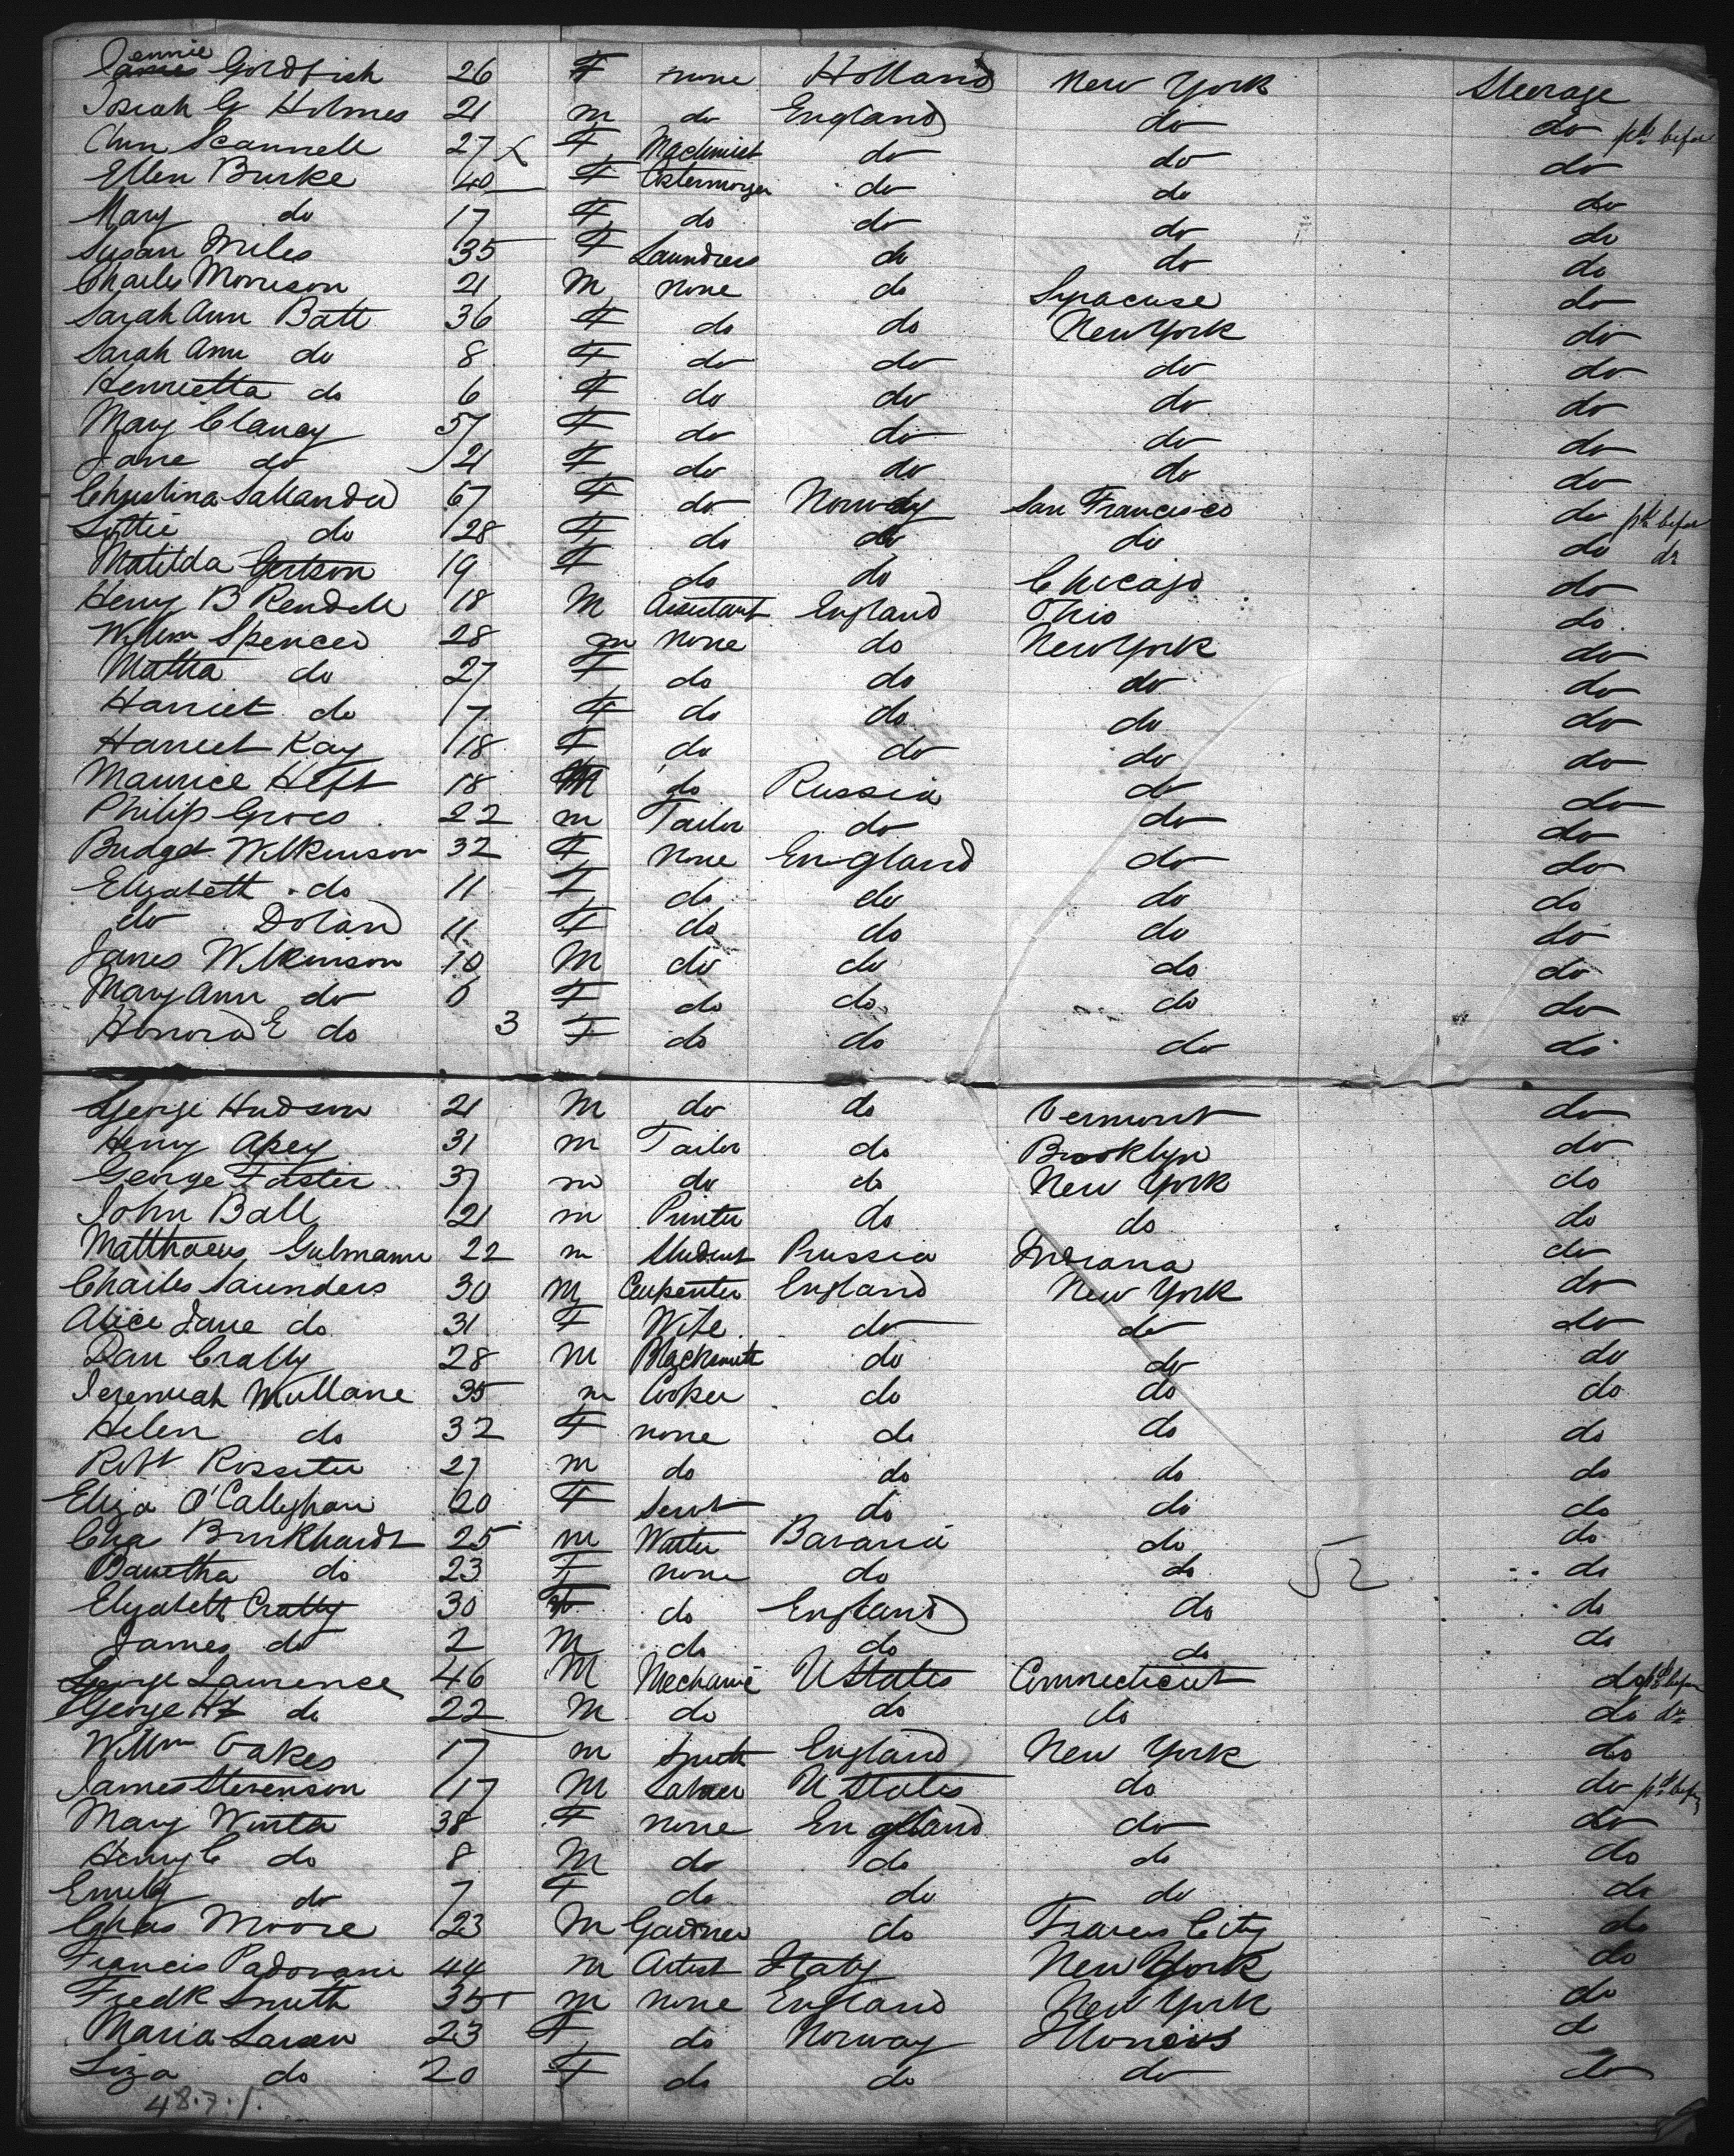 Jennie Goldfish 26 F none Holland New York Steerage
Josiah G Holmes 21 m do England do do pd before
Ann Scannell 27 F Machinist do do do
Ellen Burke 40 F do do do
Mary do 17 F do do do do
Susan Miles 35 F Laundress do do do
Charles Morrison 21 M none do Syracuse do
Sarah Ann Batt 36 F do do New York do
Sarah Ann do 8 F do do do do
Henrietta do 6 F do do do do
Mary Clancy 57 F do do do do
Jane do 21 F do do do do
Christina 67 F do Norway San Francisco do pd before
Lottie do 28 F do do do do do
Matilda Gertson 19 F do do Chicago do
Henry B Rendell 18 M Assistant England Ohio do
Willm Spencer 28 m none do New York do
Martha do 27 F do do do do
Harriet do 7 F do do do do
Harriet Kay 18 F do do do do
Maurice Heft 18 M do Russia do do
Philip 22 m Tailor do do do
Bridget Wilkinson 32 F none England do do
Elizabeth do 11 F do do do do
do Doland 11 F do do do do
James Wilkinson 10 M do do do do
Mary Ann do 6 F do do do do
Honora E do 3 F do do do do
George Hudson 21 M do do Vermont do
Henry Apey 31 m Tailor do Brooklyn do
George Foster 37 m do do New York do
John Ball 21 m Printer do do do
Matthaeus 22 m Student Prussia Indiana do
Charles Saunders 30 M Carpenter England New York do
Alice Jane do 31 F Wife do do do
Dan Crally 28 M Blacksmith do do do
Jeremiah Mullane 35 m Cooper do do do
Helen do 32 F none do do do
Robt Rossiter 27 m do do do do
Eliza O'Calleghan 20 F Servt do do do
Chas Burkhardt 25 m Waiter Bavaria do do
do 23 F none do do 52 do
Elizabeth Crally 30 F do England do do
James do 2 M do do do do
George Lawrence 46 M Mechanic U States Connecticut do pd before
George H do 22 M do do do do do
Willm Oakes 17 m Smith England New York do
James Stevenson 17 M Labaer U States do do pd before
Mary Winter 38 F none England do do
Henry C do 8 M do do do do
Emily do 7 F do do do do
Chas Moore 23 M Gardner do City do
Francis Padovani 44 m Artist Italy New York do
Fredk Smith 35 m none England New York do
Maria Larsen 23 F do Norway Illonois do
Liza do 20 F do do do do
48.7.1.